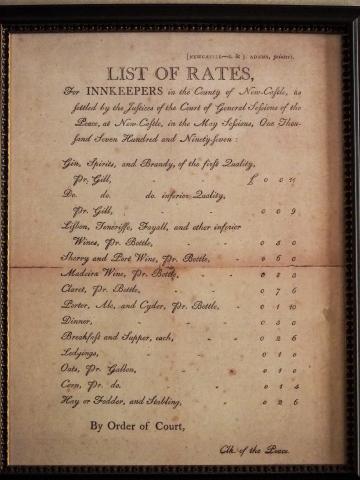 [NEWCASTLE—S. & J. ADAMS, printers.
LIST OF RATES,
For INNKEEPERS in the County of New-Castle, as
settled by the Justices of the Court of General Sessions of the
Peace, at New-Castle, in the May Sessions, One Thou-
sand Seven Hundred and Ninety-seven:
Gin, Spirits, and Brandy, of the first Quality,
Pr. Gill, £ 0 0 11
Do. do. do. inferior Quality,
Pr. Gill, - - - 0 0 9
Lisbon, Teneriffe, Fayall, and other inferior
Wines, Pr. Bottle, - - 0 5 0
Sherry and Port Wine, Pr. Bottle, - 0 6 0
Madeira Wine, Pr. Bottle, - -
Claret, Pr. Bottle, - - 0 7 6
Porter, Ale, and Cyder, Pr. Bottle, 0 1 10
Dinner, - - - 0 3 0
Breakfast and Supper, each, - 0 2 6
Lodgings, - - - 0 1 0
Oats, Pr. Gallon, - - 0 1 0
Corn, Pr. do. - - - 0 1 4
Hay or Fodder, and Stabling, - 0 2 6
By Order of Court,
Clk. of the Peace.